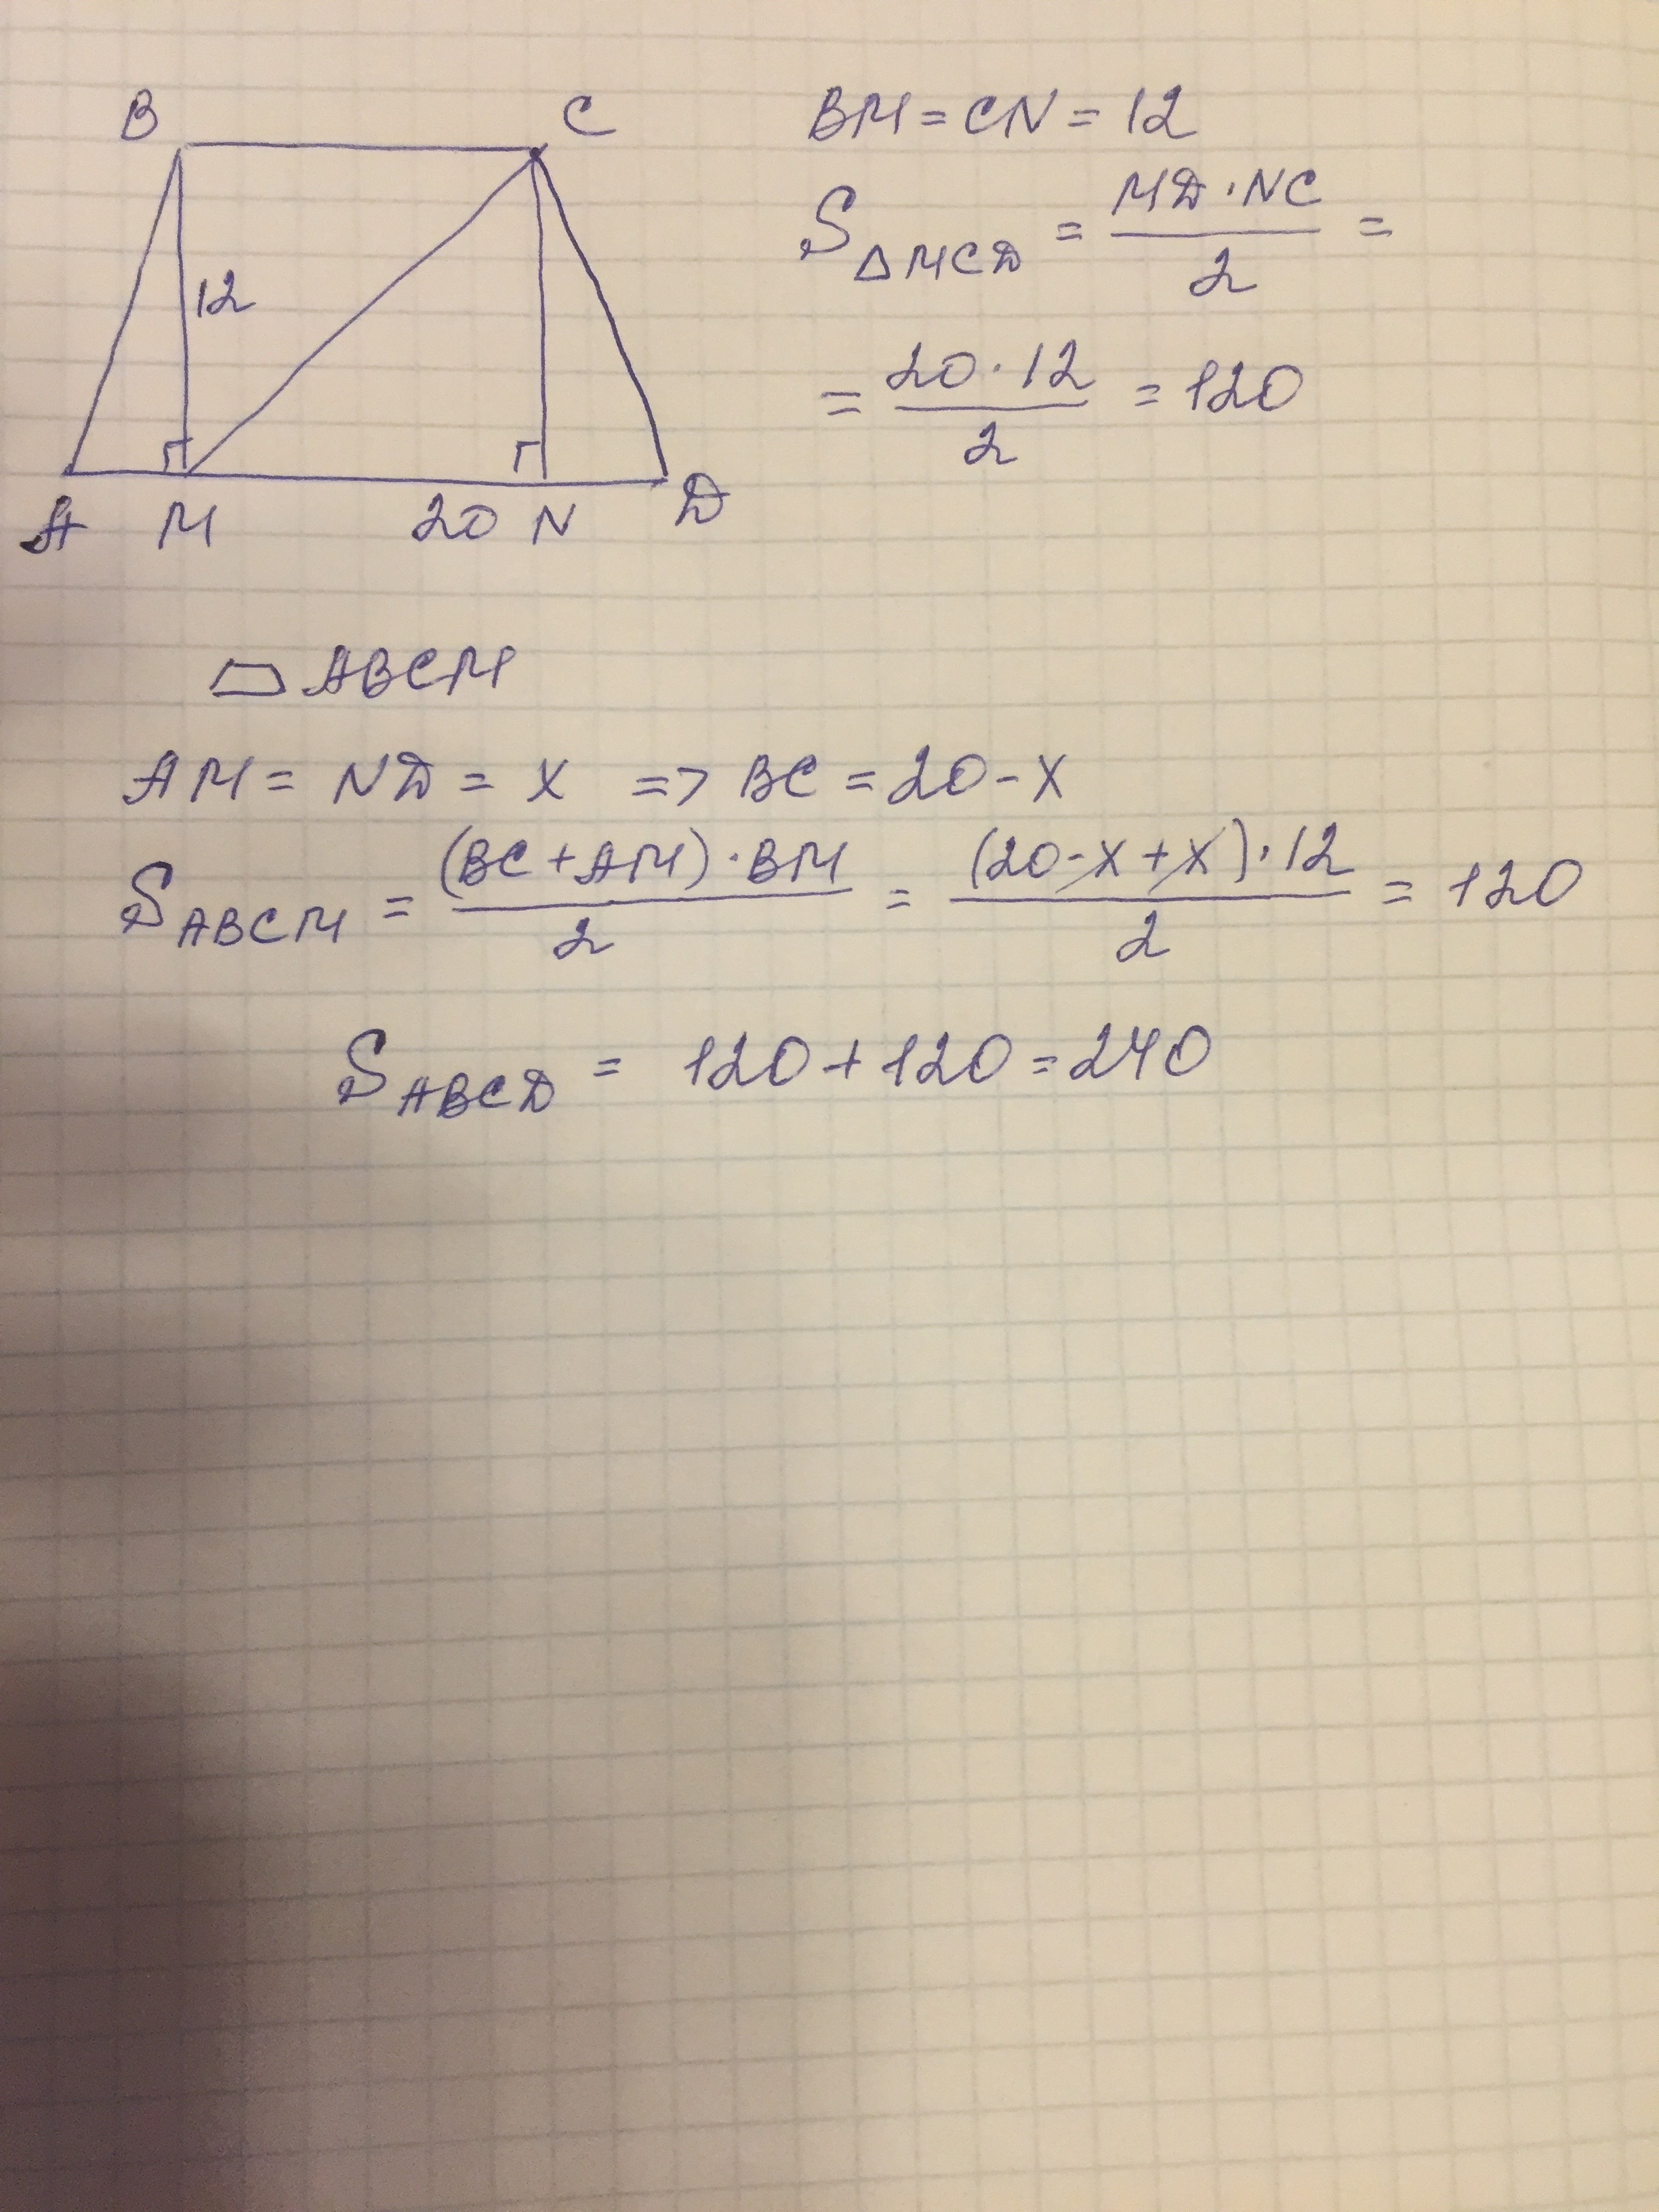 B C
12
A M 20 N D
BM = CN = 12
S△MCD = (MD · NC)/2 =
= (20 · 12)/2 = 120
⏢ ABCM
AM = ND = x => BC = 20 - x
S ABCM = ((BC + AM) · BM)/2 = ((20 - x + x) · 12)/2 = 120
S ABCD = 120 + 120 = 240